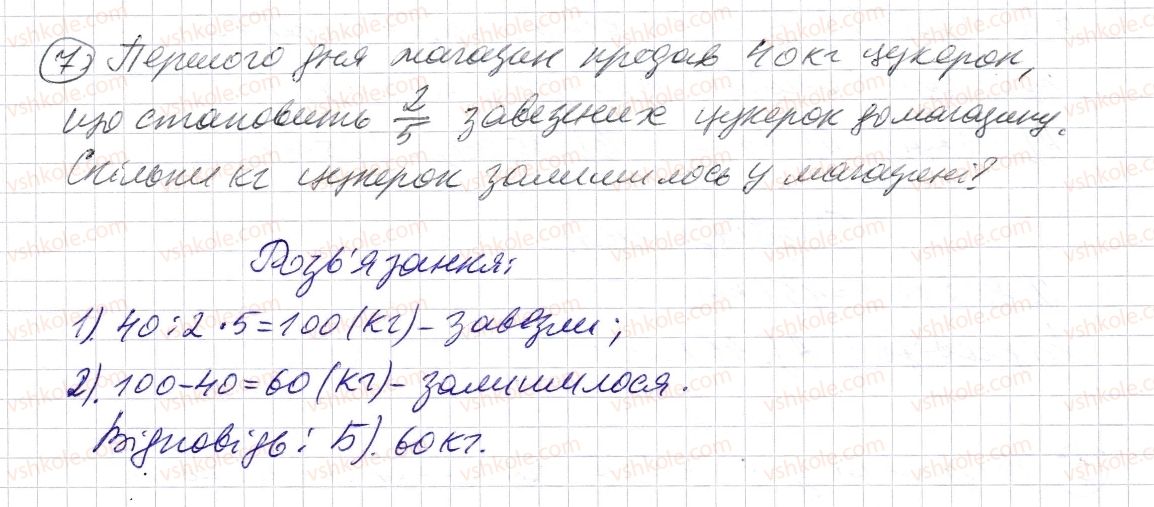 7) Першого дня магазин продав 40 кг цукерок,
що становить 2/5 завезених цукерок до магазину.
Скільки кг цукерок залишилось у магазині?
Розв'язання:
1). 40:2·5=100 (кг) – завезли;
2). 100-40=60 (кг) – залишилося.
Відповідь: Б). 60 кг.